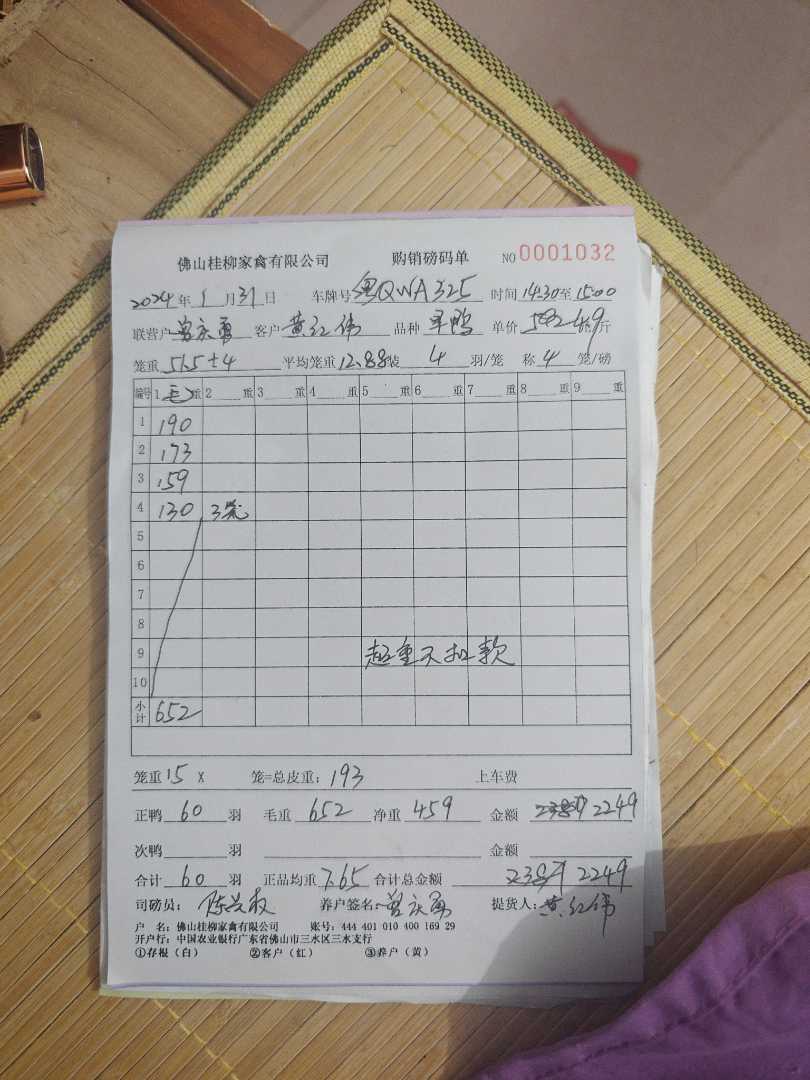 佛山桂柳家禽有限公司 购销磅码单 NO 0001032
2024年1月31日 车牌号 粤QWA325 时间 14:30至15:00
联营户 曾庆勇 客户 黄红伟 品种 单价 4.9 /斤
笼重 51.5±4 平均笼重 12.88 装 4 羽/笼 称 4 笼/磅
编号 1 毛 重 2 重 3 重 4 重 5 重 6 重 7 重 8 重 9 重
1 190
2 173
3 159
4 130 3笼
5
6
7
8
9 超重不扣款
10
小计 652
笼重 15 X 笼=总皮重: 193 上车费
正鸭 60 羽 毛重 652 净重 459 金额 2249
次鸭 羽 金额
合计 60 羽 正品均重 7.65 合计总金额 2249
司磅员: 养户签名: 曾庆勇 提货人: 黄红伟
户 名: 佛山桂柳家禽有限公司 账号: 444 401 010 400 169 29
开户行: 中国农业银行广东省佛山市三水区三水支行
①存根(白) ②客户(红) ③养户(黄)